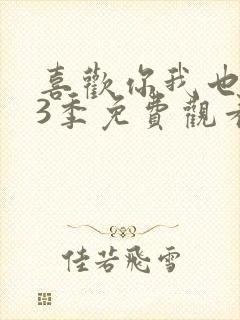 喜歡你我也
3季免費觀
佳若飛雪